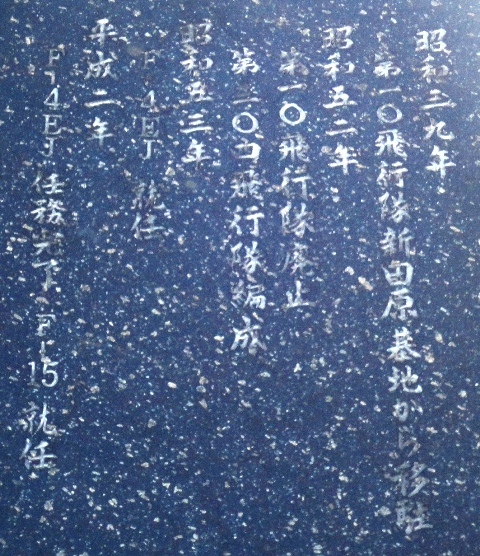 昭和三九年
第一〇飛行隊新田原基地から移駐
昭和五二年
第一〇飛行隊廃止
第三〇四飛行隊編成
昭和五三年
F-4EJ 就任
平成二年
F-4EJ 任務完了 F-15 就任